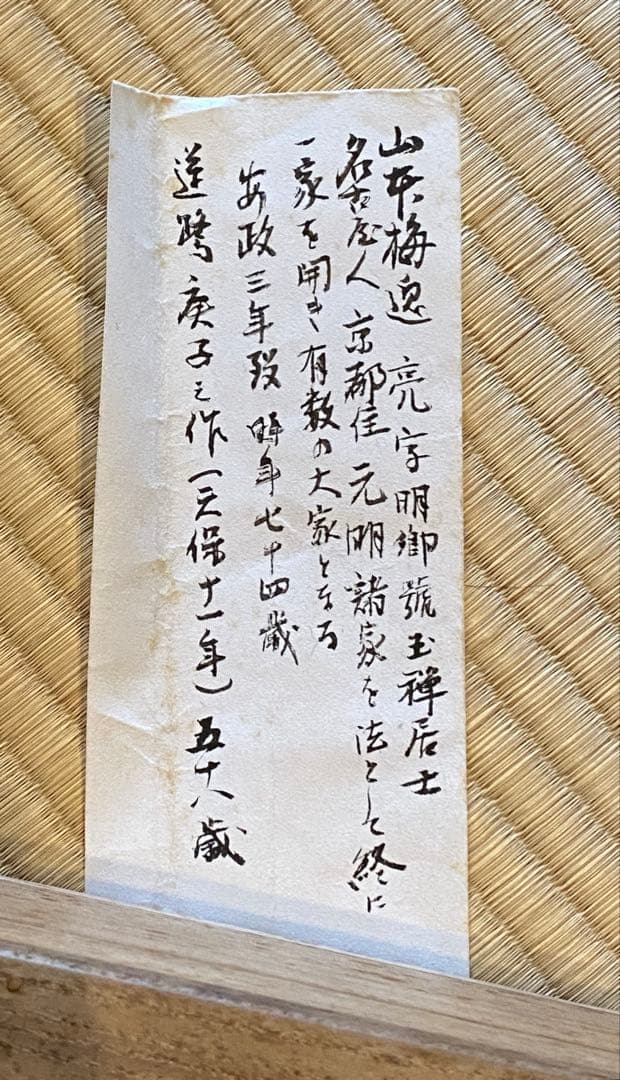 山本梅逸 亮 字明卿 號玉禅居士
名古屋人 京都住 元明諸家を法として終に
一家を開き有数の大家となる
安政三年歿 時年七十四歳
蓮鷺 庚子之作(天保十一年)五十八歳